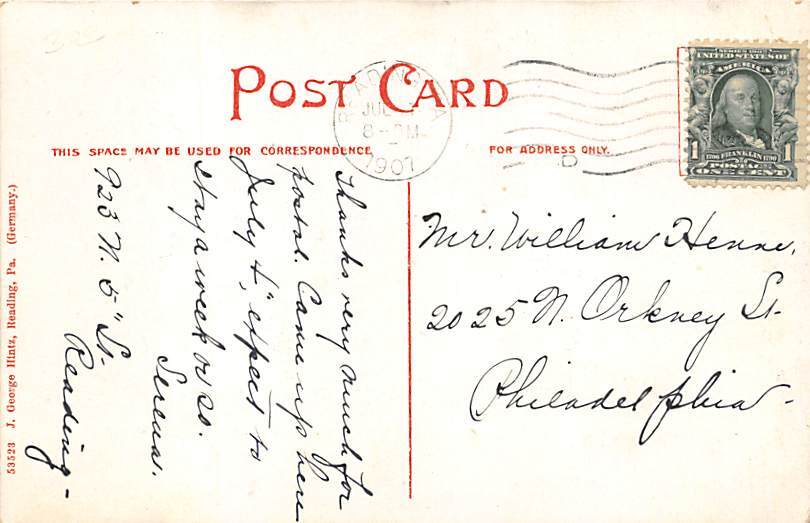 POST CARD
THIS SPACE MAY BE USED FOR CORRESPONDENCE
FOR ADDRESS ONLY.
READING, PA
JUL
8-PM
1907
D
SERIES 1902
UNITED STATES OF
AMERICA
1 1706 FRANKLIN 1790 1
POSTAGE
ONE CENT
Thanks very much for
postal. Came up here
July 4", expect to
stay a week or so.
Serena.
923 N. 5" St-
Reading-
Mr. William Henne,
2025 N. Orkney St-
Philadelphia-
53523 J. George Hintz, Reading, Pa. (Germany.)